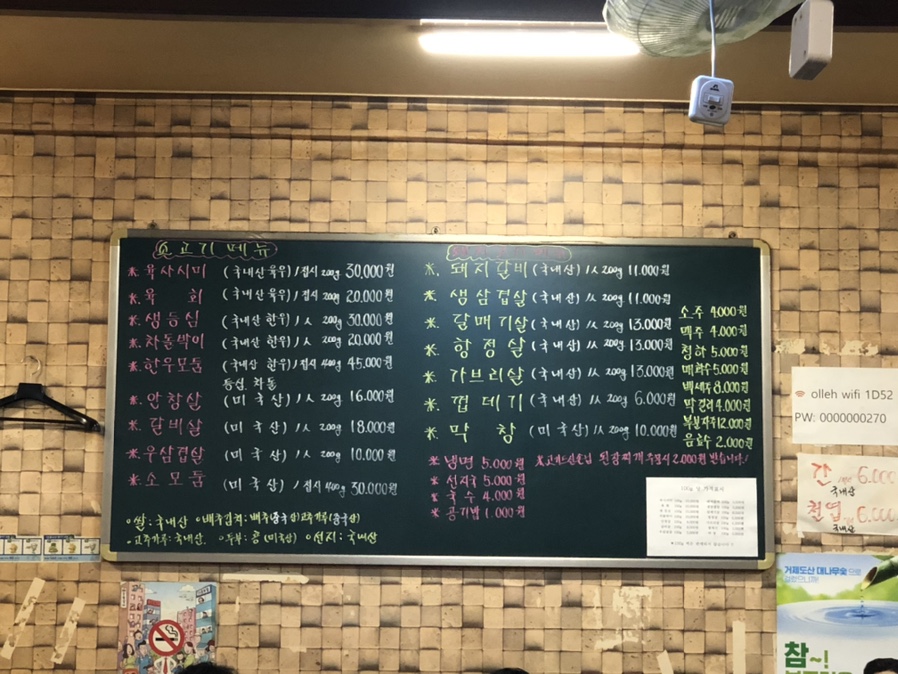 소고기 메뉴
※. 육사시미 (국내산 육우) / 접시 200g 30,000원
※. 육 회 (국내산 육우) / 접시 200g 20,000원
※. 생등심 (국내산 한우) / 人 200g 30,000원
※. 차돌박이 (국내산 한우) / 人 200g 20,000원
※. 한우모둠 (국내산 한우) / 접시 400g 45,000원
등심, 차돌
※. 안창살 (미국산) / 人 200g 16,000원
※. 갈비살 (미국산) / 人 200g 18,000원
※. 우삼겹살 (미국산) / 人 200g 10,000원
※. 소모둠 (미국산) / 접시 400g 30,000원
○쌀: 국내산 ○배추김치: 배추(중국산)고추가루(중국산)
○고추가루: 국내산, ○두부: 콩 (미국산) ○선지: 국내산
※. 돼지갈비 (국내산) 1人 200g 11,000원
※. 생삼겹살 (국내산) 1人 200g 11,000원
※. 갈매기살 (국내산) 1人 200g 13,000원
※. 항정살 (국내산) 1人 200g 13,000원
※. 가브리살 (국내산) 1人 200g 13,000원
※. 껍데기 (국내산) 1人 200g 6,000원
※. 막 창 (국내산) 1人 200g 10,000원
※냉면 5,000원 ※고기드신손님 된장찌개 주문시 2,000원 받습니다!
※선지국 5,000원
※국수 4,000원
※공기밥 1,000원
소주 4,000원
맥주 4,000원
청하 5,000원
매화수 5,000원
백세주 8,000원
막걸리 4,000원
복분자주 12,000원
음료수 2,000원
olleh wifi 1D52
PW: 0000000270
간 6,000
국내산
천엽 6,000
국내산
거제도산 대나무숯으로
걸렀으니까!
참~!